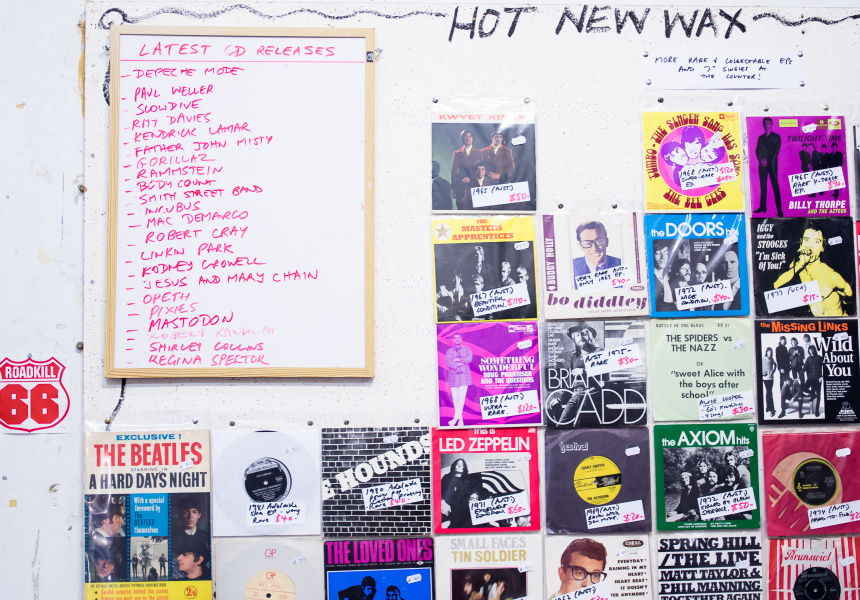 HOT NEW WAX
MORE RARE & COLLECTABLE EPs
AND 7" SINGLES AT
THE COUNTER!
LATEST CD RELEASES
- DEPECHE MODE
- PAUL WELLER
- SLOWDIVE
- RAY DAVIES
- KENDRICK LAMAR
- FATHER JOHN MISTY
- GORILLAZ
- RAMMSTEIN
- BODY COUNT
- SMITH STREET BAND
- INCUBUS
- MAC DEMARCO
- ROBERT CRAY
- LINKIN PARK
- RODNEY CROWELL
- JESUS AND MARY CHAIN
- OPETH
- PIXIES
- MASTODON
- SHIRLEY COLLINS
- REGINA SPEKTOR
ROADKILL
66
KWYET KIN
1965 (AUST)
$50-
THE SINGER SANG HIS SONG
1968 (AUST)
$120-
THE BEE GEES
TWILIGHT TIME
1965 (AUST)
RARE 4-TRACK
EP. $90-
BILLY THORPE
AND THE AZTECS
THE MASTERS
APPRENTICES
1967 (AUST)
BEAUTIFUL
CONDITION. $110-
BUDDY HOLLY
VERY RARE AUST-
ONLY 1963 EP.
$70-
bo diddley
the DOORS hits
1972 (AUST).
NICE
CONDITION. $40-
IGGY
and the
STOOGES
"I'm Sick
Of You!"
1977 (USA)
$15-
SOMETHING
WONDERFUL
DOUG PARKINSON
AND THE QUESTIONS
1968 (AUST)
ULTRA-
RARE. $120-
AUST 1975-
RARE $30-
BRIAN
CADD
BATTLE OF THE BANDS EP #1
THE SPIDERS vs
THE NAZZ
OR
"sweet Alice with
the boys after
school"
ALICE COOPER
$20-
THE MISSING LINKS
Wild
About
You
EXCLUSIVE!
THE BEATLES
STARRING IN
A HARD DAYS NIGHT
With a special
foreword by
THE BEATLES
themselves
2/6
1981 Adelaide
RARE $40-
E HOUNDS
1980 ADELAIDE
$40-
THIS IS
LED ZEPPELIN
1971 (AUST)
EXCELLENT
CONDITION $60-
festival
1969 (AUST)
$20-
the AXIOM hits
1972 (AUST)
SIGNED BY GLENN
SHORROCK. $50-
1974 (AUST)
HARD-TO-FIND
THE LOVED ONES
SMALL FACES
TIN SOLDIER
CORAL
EVERYDAY
RAINING IN MY
HEART
HEART BEAT
IT DOESN'T
MATTER ANYMORE
SPRING HILL
/THE LINE
MATT TAYLOR &
PHIL MANNING
TOGETHER AGAIN
Brunswick